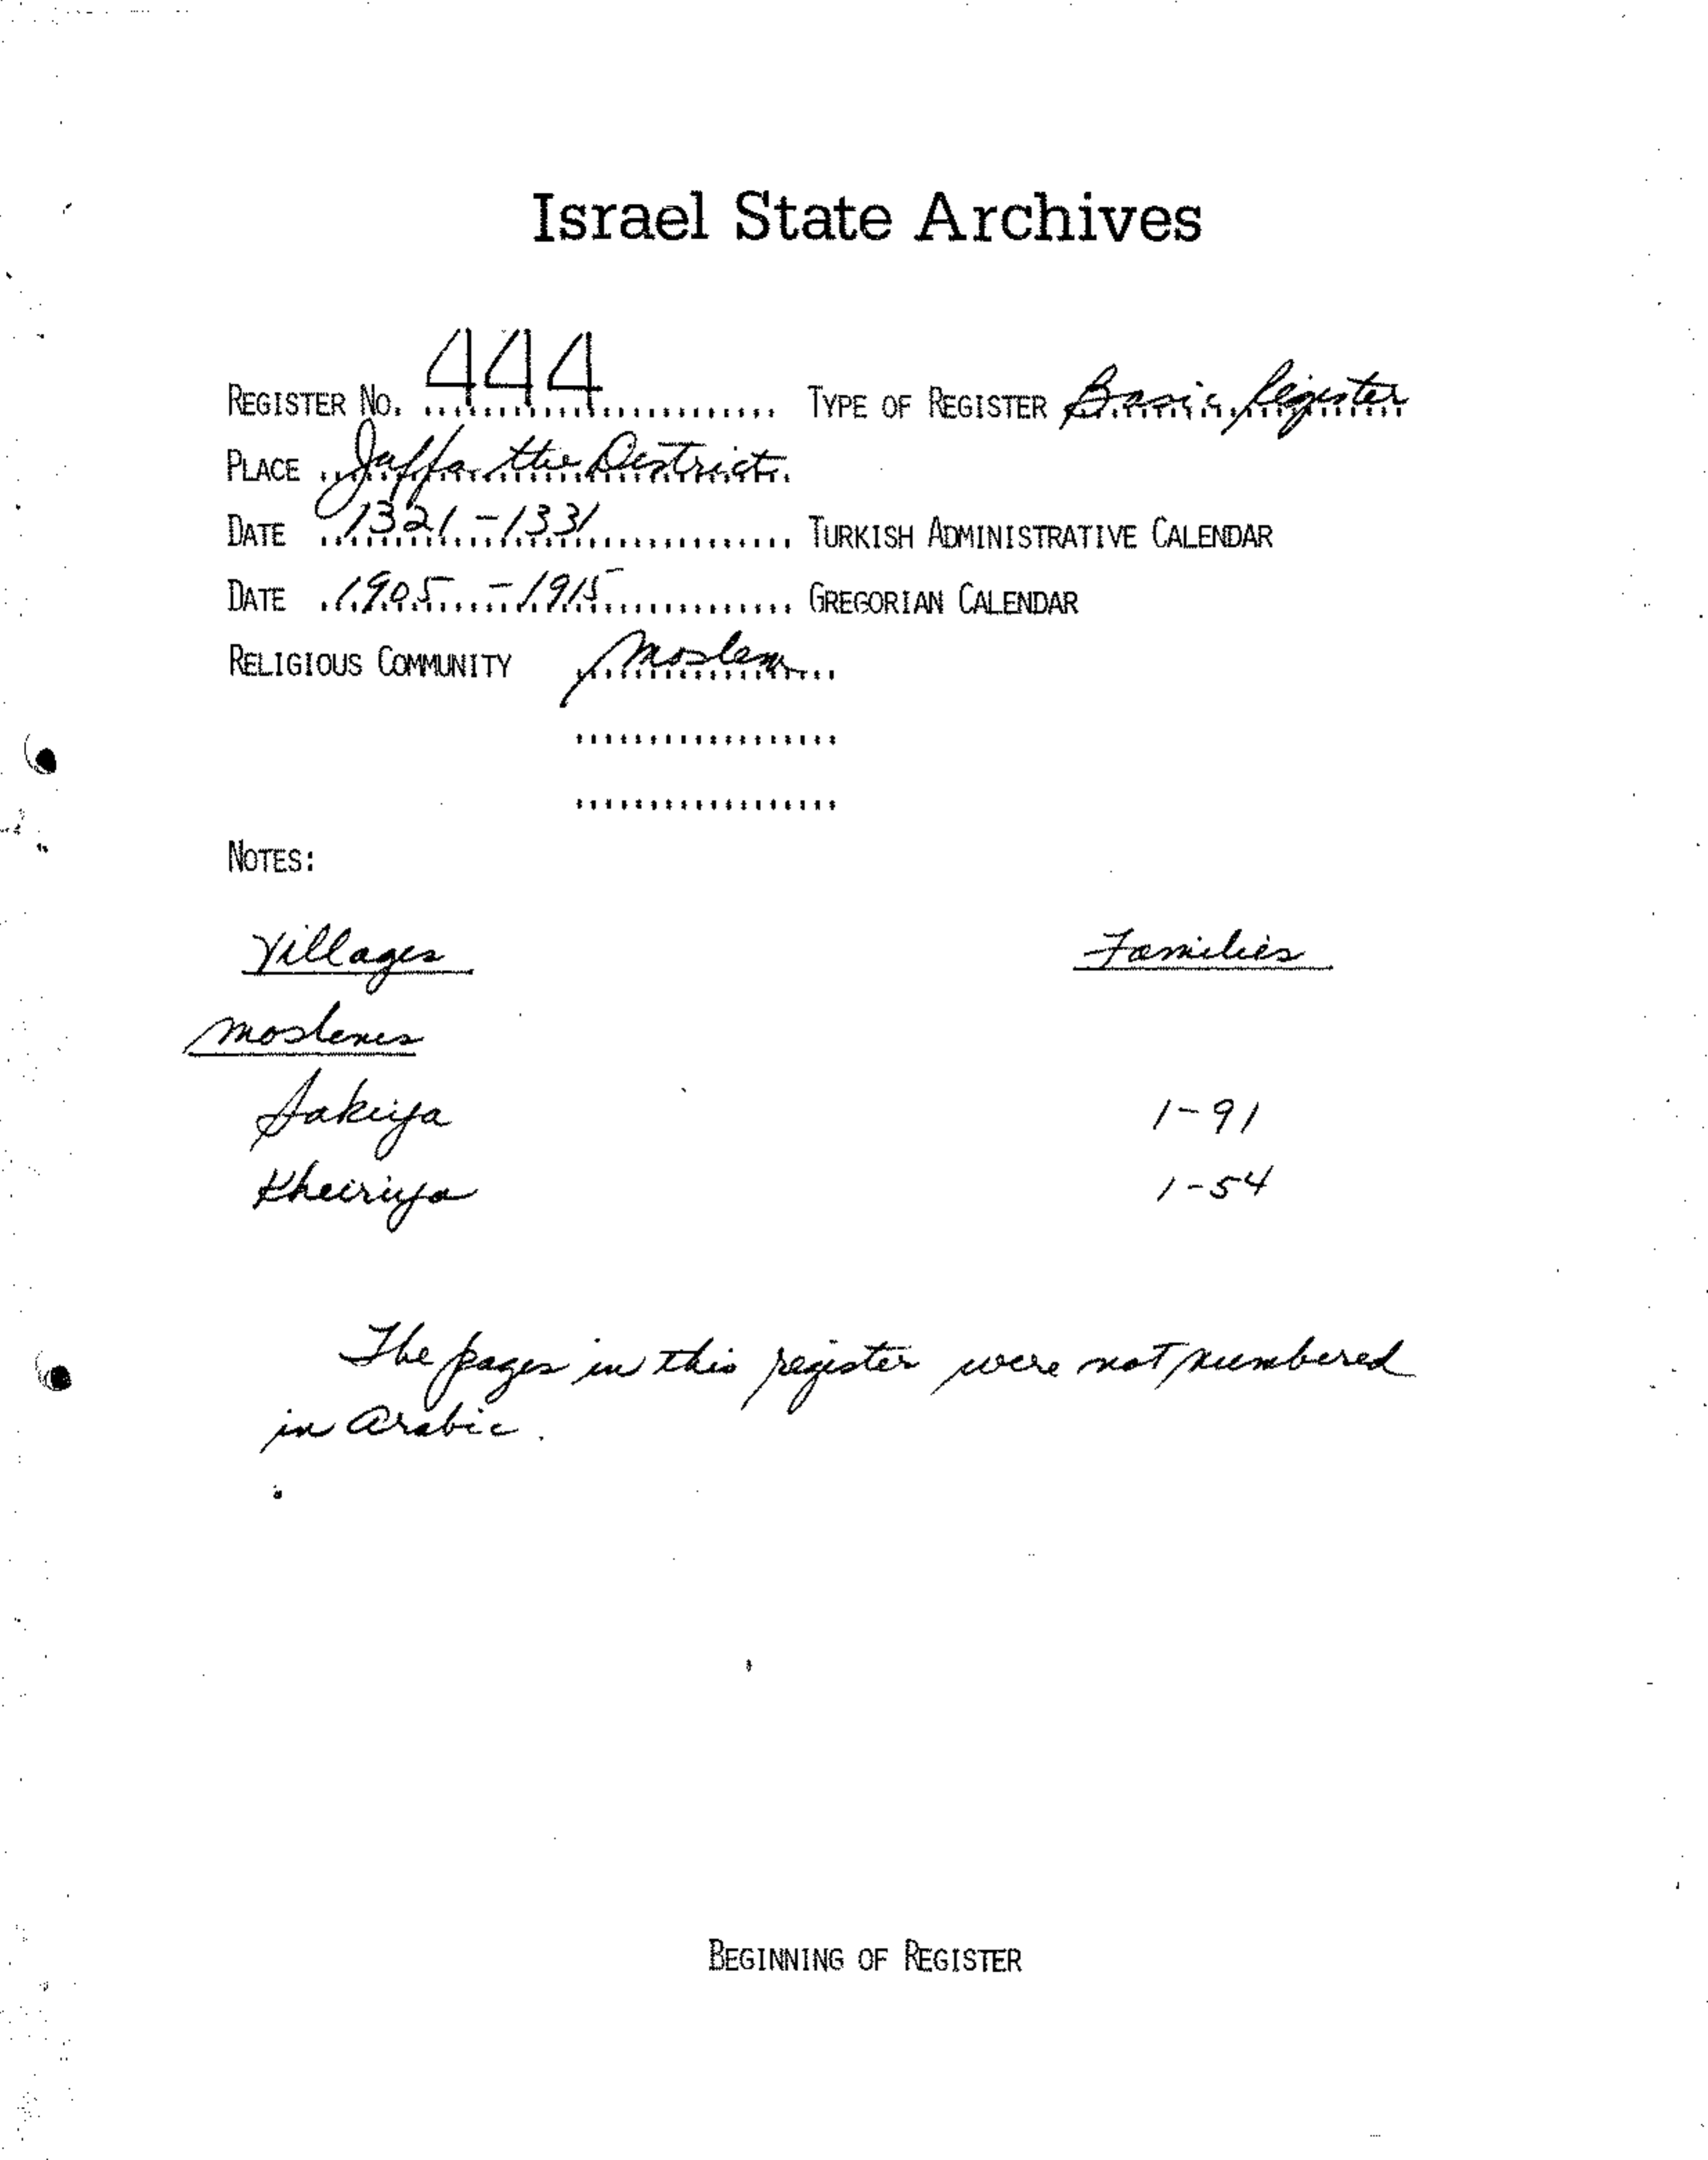 Israel State Archives
REGISTER NO. 444 TYPE OF REGISTER Basic Register
PLACE Jaffa the District
DATE 1321-1331 TURKISH ADMINISTRATIVE CALENDAR
DATE 1905-1915 GREGORIAN CALENDAR
RELIGIOUS COMMUNITY Moslem
NOTES:
Villages Families
Moslems
Sakiya 1-91
Kheiriya 1-54
The pages in this register were not numbered
in Arabic.
BEGINNING OF REGISTER